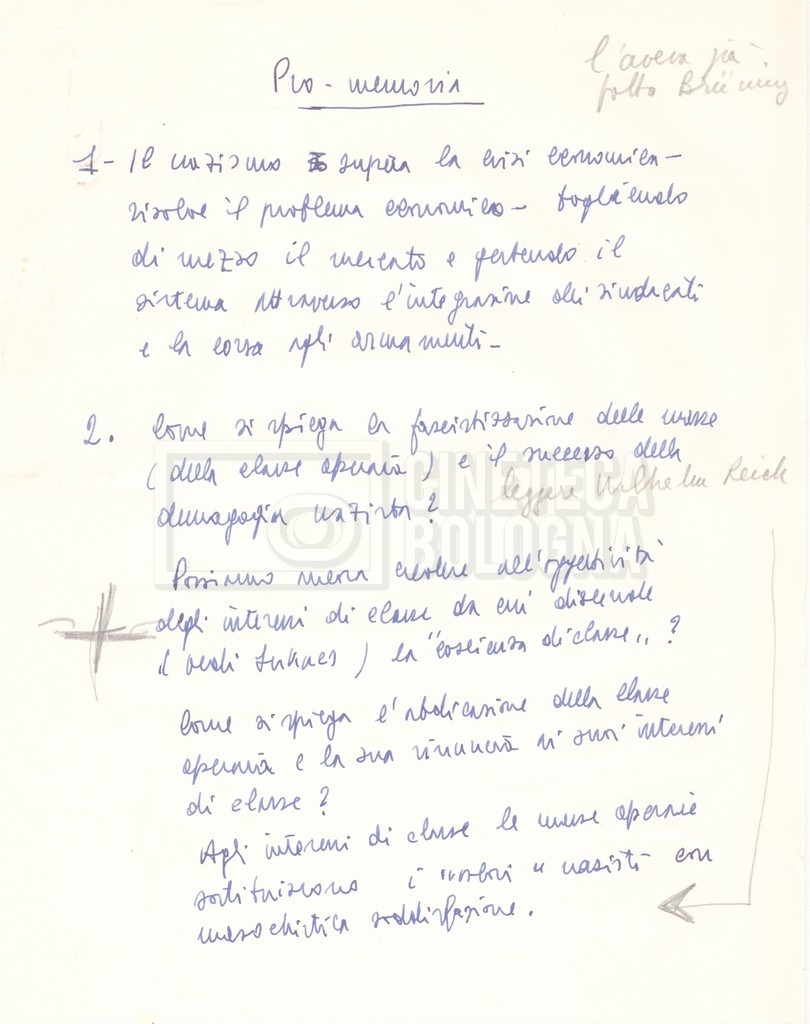 Pro-memoria
l'aveva già
fatto Brüning
1- Il nazismo supera la crisi economica -
risolve il problema economico - togliendo
di mezzo il mercato e gestendo il
sistema attraverso l'integrazione dei sindacati
e la corsa agli armamenti -
2. Come si spiega la fascistizzazione delle masse
(della classe operaia) e il successo della
demagogia nazista?
leggere Wilhelm Reich
Possiamo ancora credere all'oggettività
degli interessi di classe da cui discende
(vedi Lukacs) la "coscienza di classe"?
Come si spiega l'abdicazione della classe
operaia e la sua rinuncia ai suoi interessi
di classe?
Agli interessi di classe le masse operaie
sostituiscono i "valori" nazisti con
masochistica soddisfazione.
CINETECA
BOLOGNA